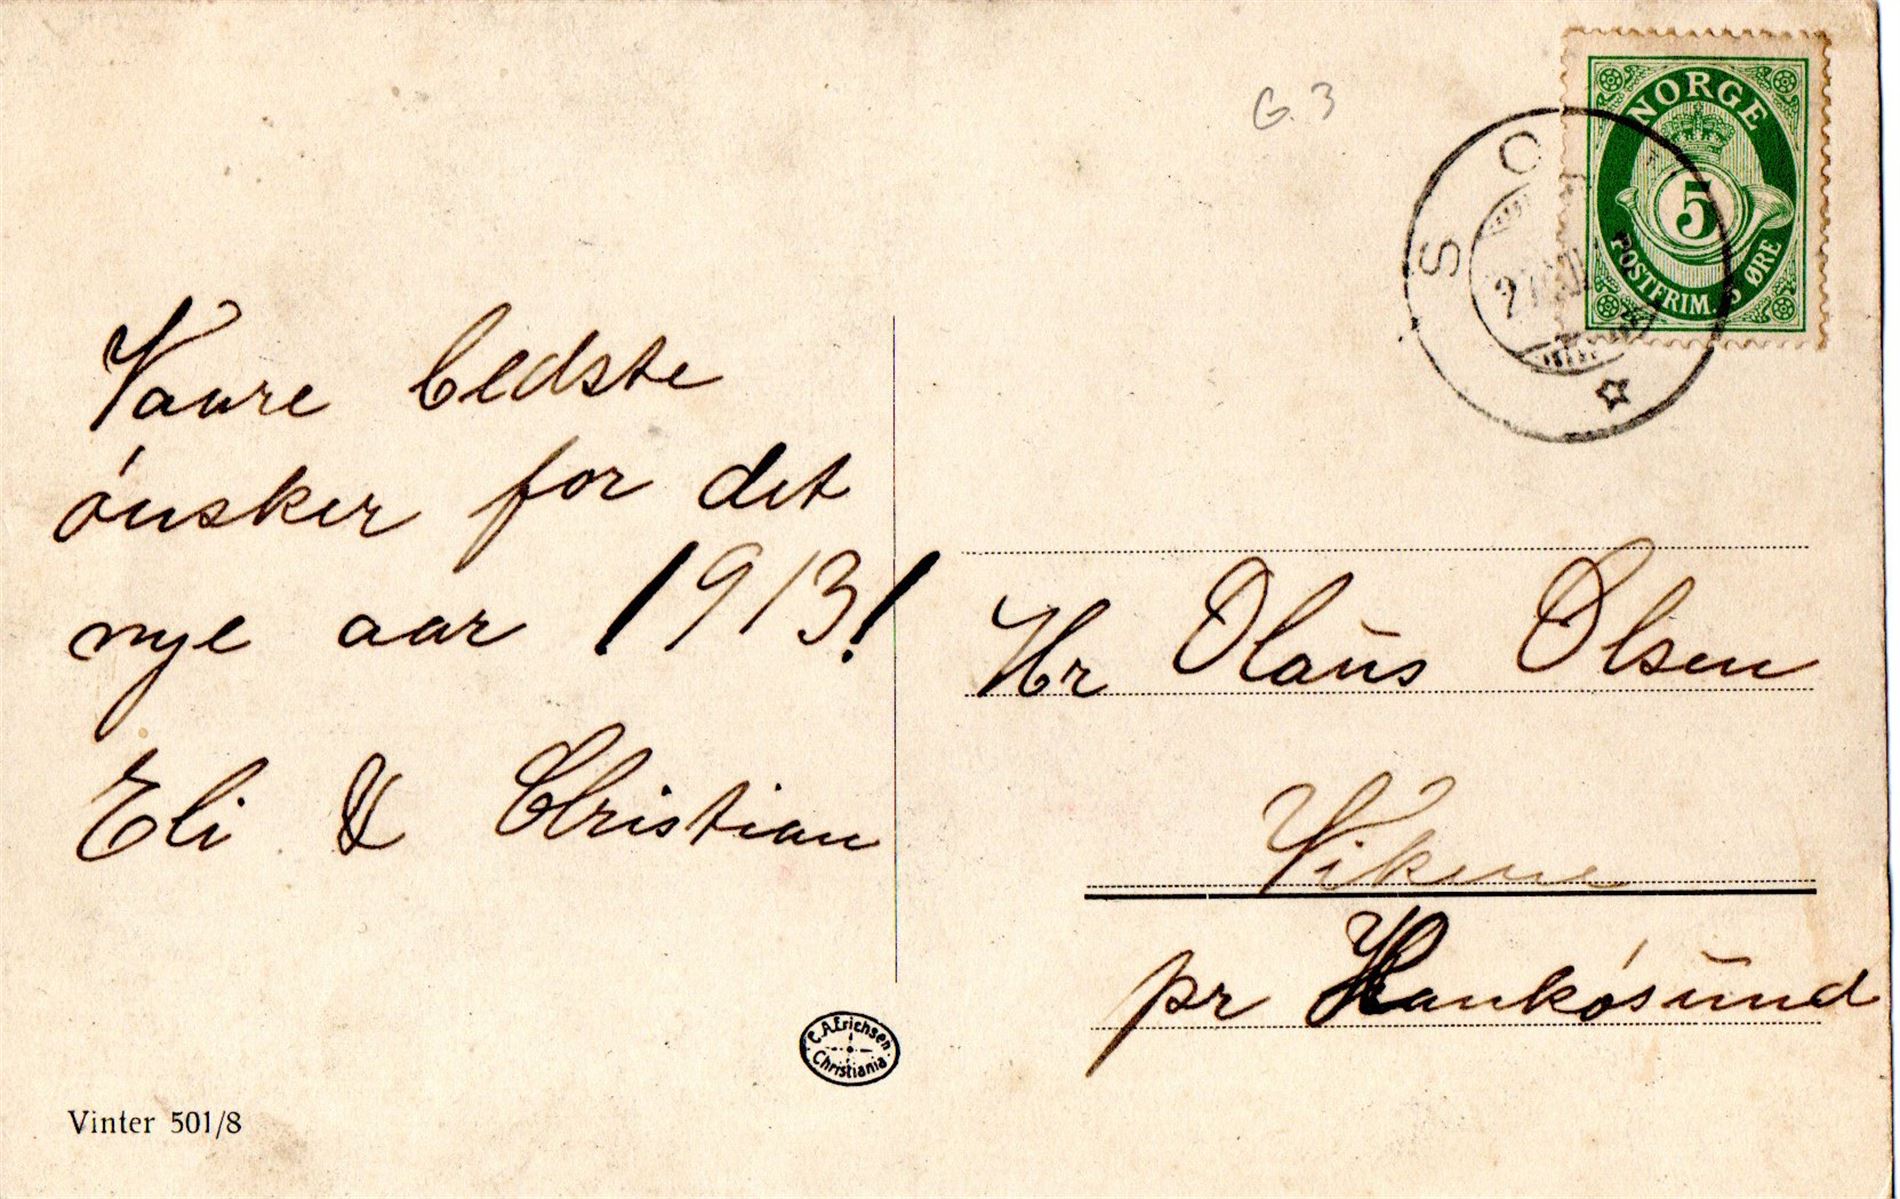 G. 3
NORGE
5
POSTFRIM. 5 ØRE
S O
Vaare bedste
ónsker for det
nye aar 1913!
Eli & Christian
Hr Olaus Olsen
Vikene
pr Hankósund
C. A. Erichsen
Christiania
Vinter 501/8